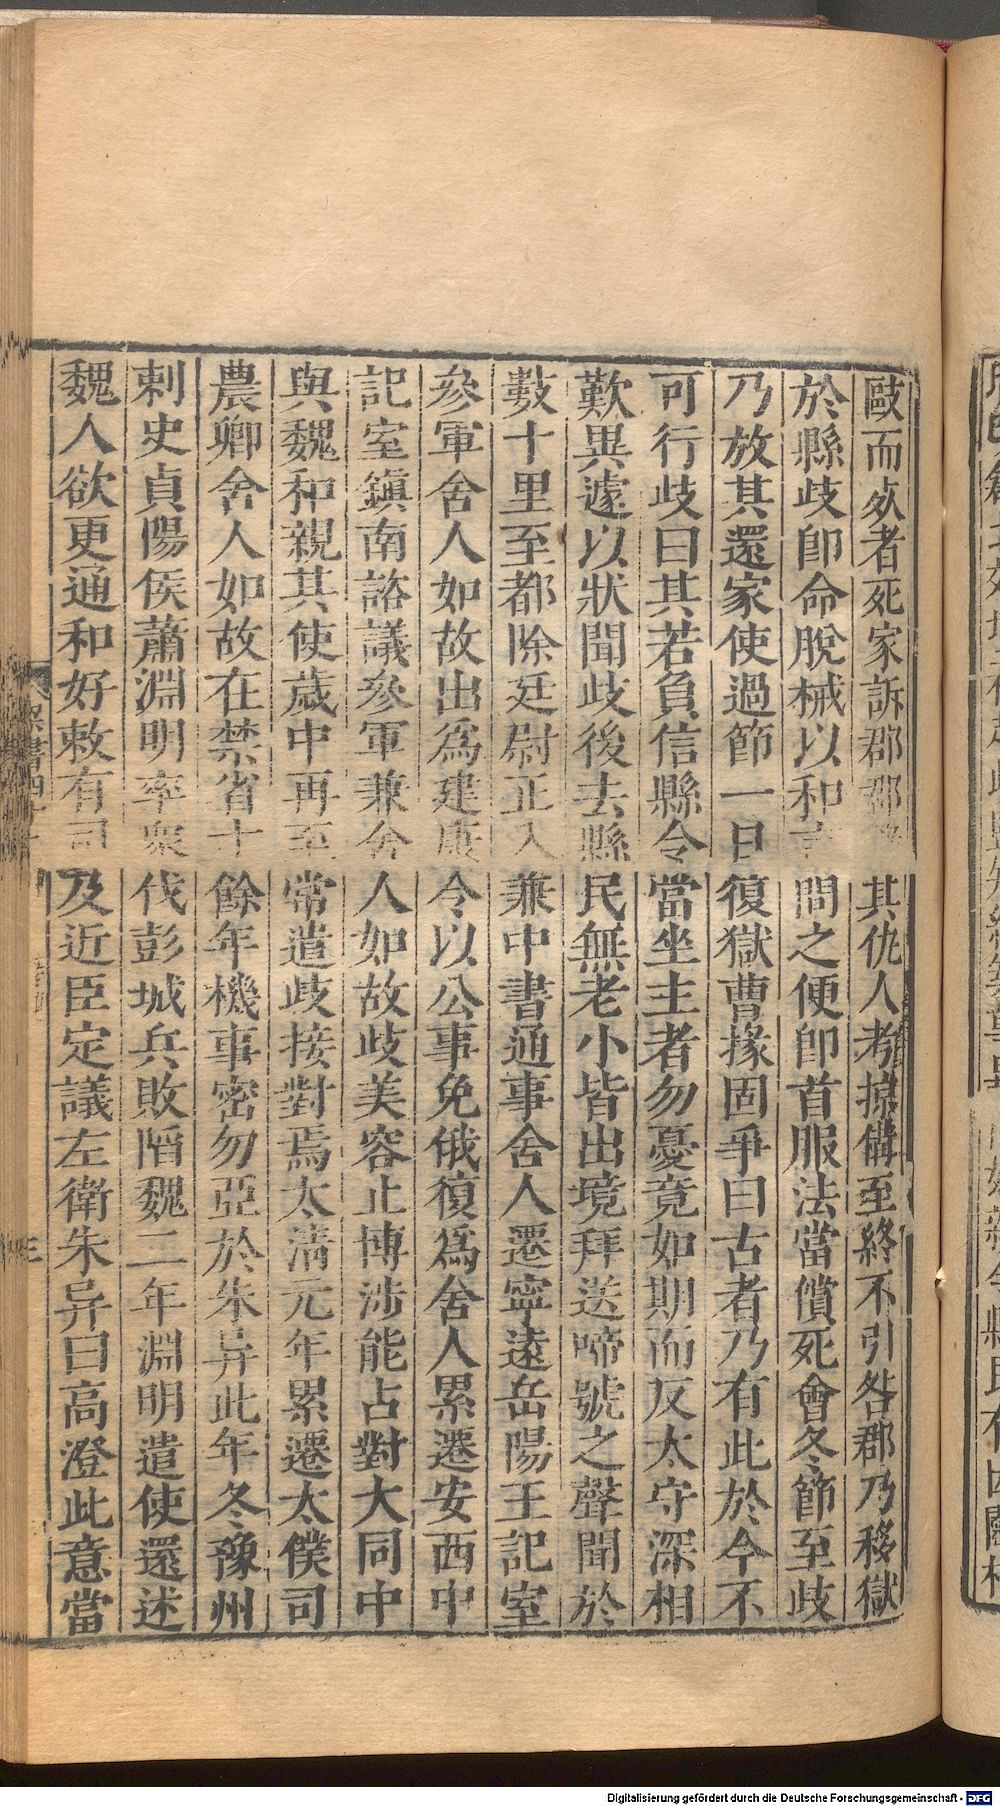 毆而死者死家訴郡郡其仇人考掠備至終不引咎郡乃移獄
於縣歧即命脫械以和言問之便即首服法當償死會冬節至歧
乃放其還家使過節一日復獄曹掾固爭曰古者乃有此於今不
可行歧曰其若負信縣令當坐主者勿憂竟如期而反太守深相
歎異遽以狀聞歧後去縣民無老小皆出境拜送啼號之聲聞於
數十里至都除廷尉正入兼中書通事舍人遷寧遠岳陽王記室
參軍舍人如故出爲建康令以公事免俄復爲舍人累遷安西中
記室鎮南諮議參軍兼舍人如故歧美容止博涉能占對大同中
與魏和親其使歲中再至常遣歧接對焉太清元年累遷太僕司
農卿舍人如故在禁省十餘年機事密勿亞於朱异此年冬豫州
刺史貞陽侯蕭淵明率衆伐彭城兵敗䧟魏二年淵明遣使還述
魏人欲更通和好敕有司及近臣定議左衛朱异曰高澄此意當
梁書四十